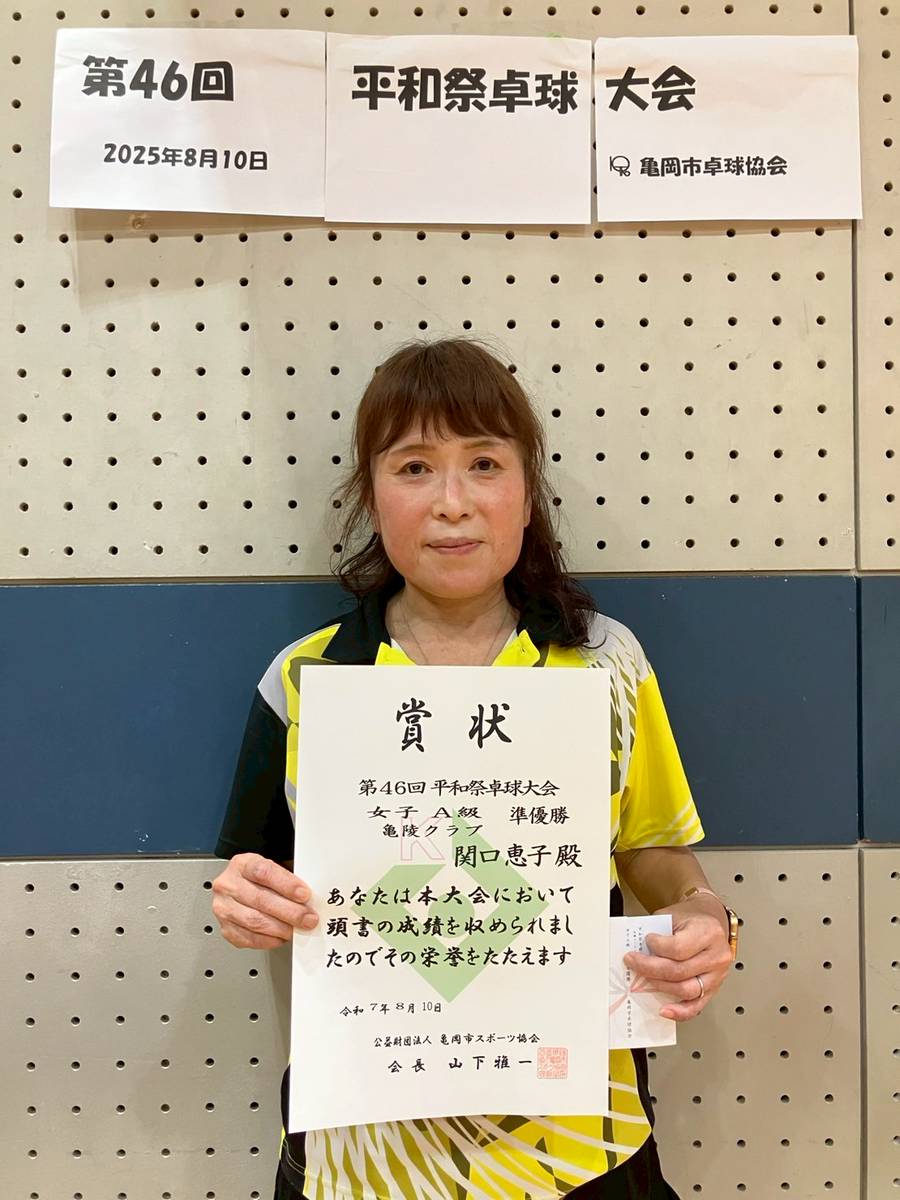 第46回 平和祭卓球 大会
2025年8月10日
亀岡市卓球協会
賞状
第46回平和祭卓球大会
女子 A級 準優勝
亀陵クラブ
関口恵子殿
あなたは本大会において
頭書の成績を収められまし
たのでその栄誉をたたえます
令和7年8月10日
公益財団法人 亀岡市スポーツ協会
会長 山下雅一